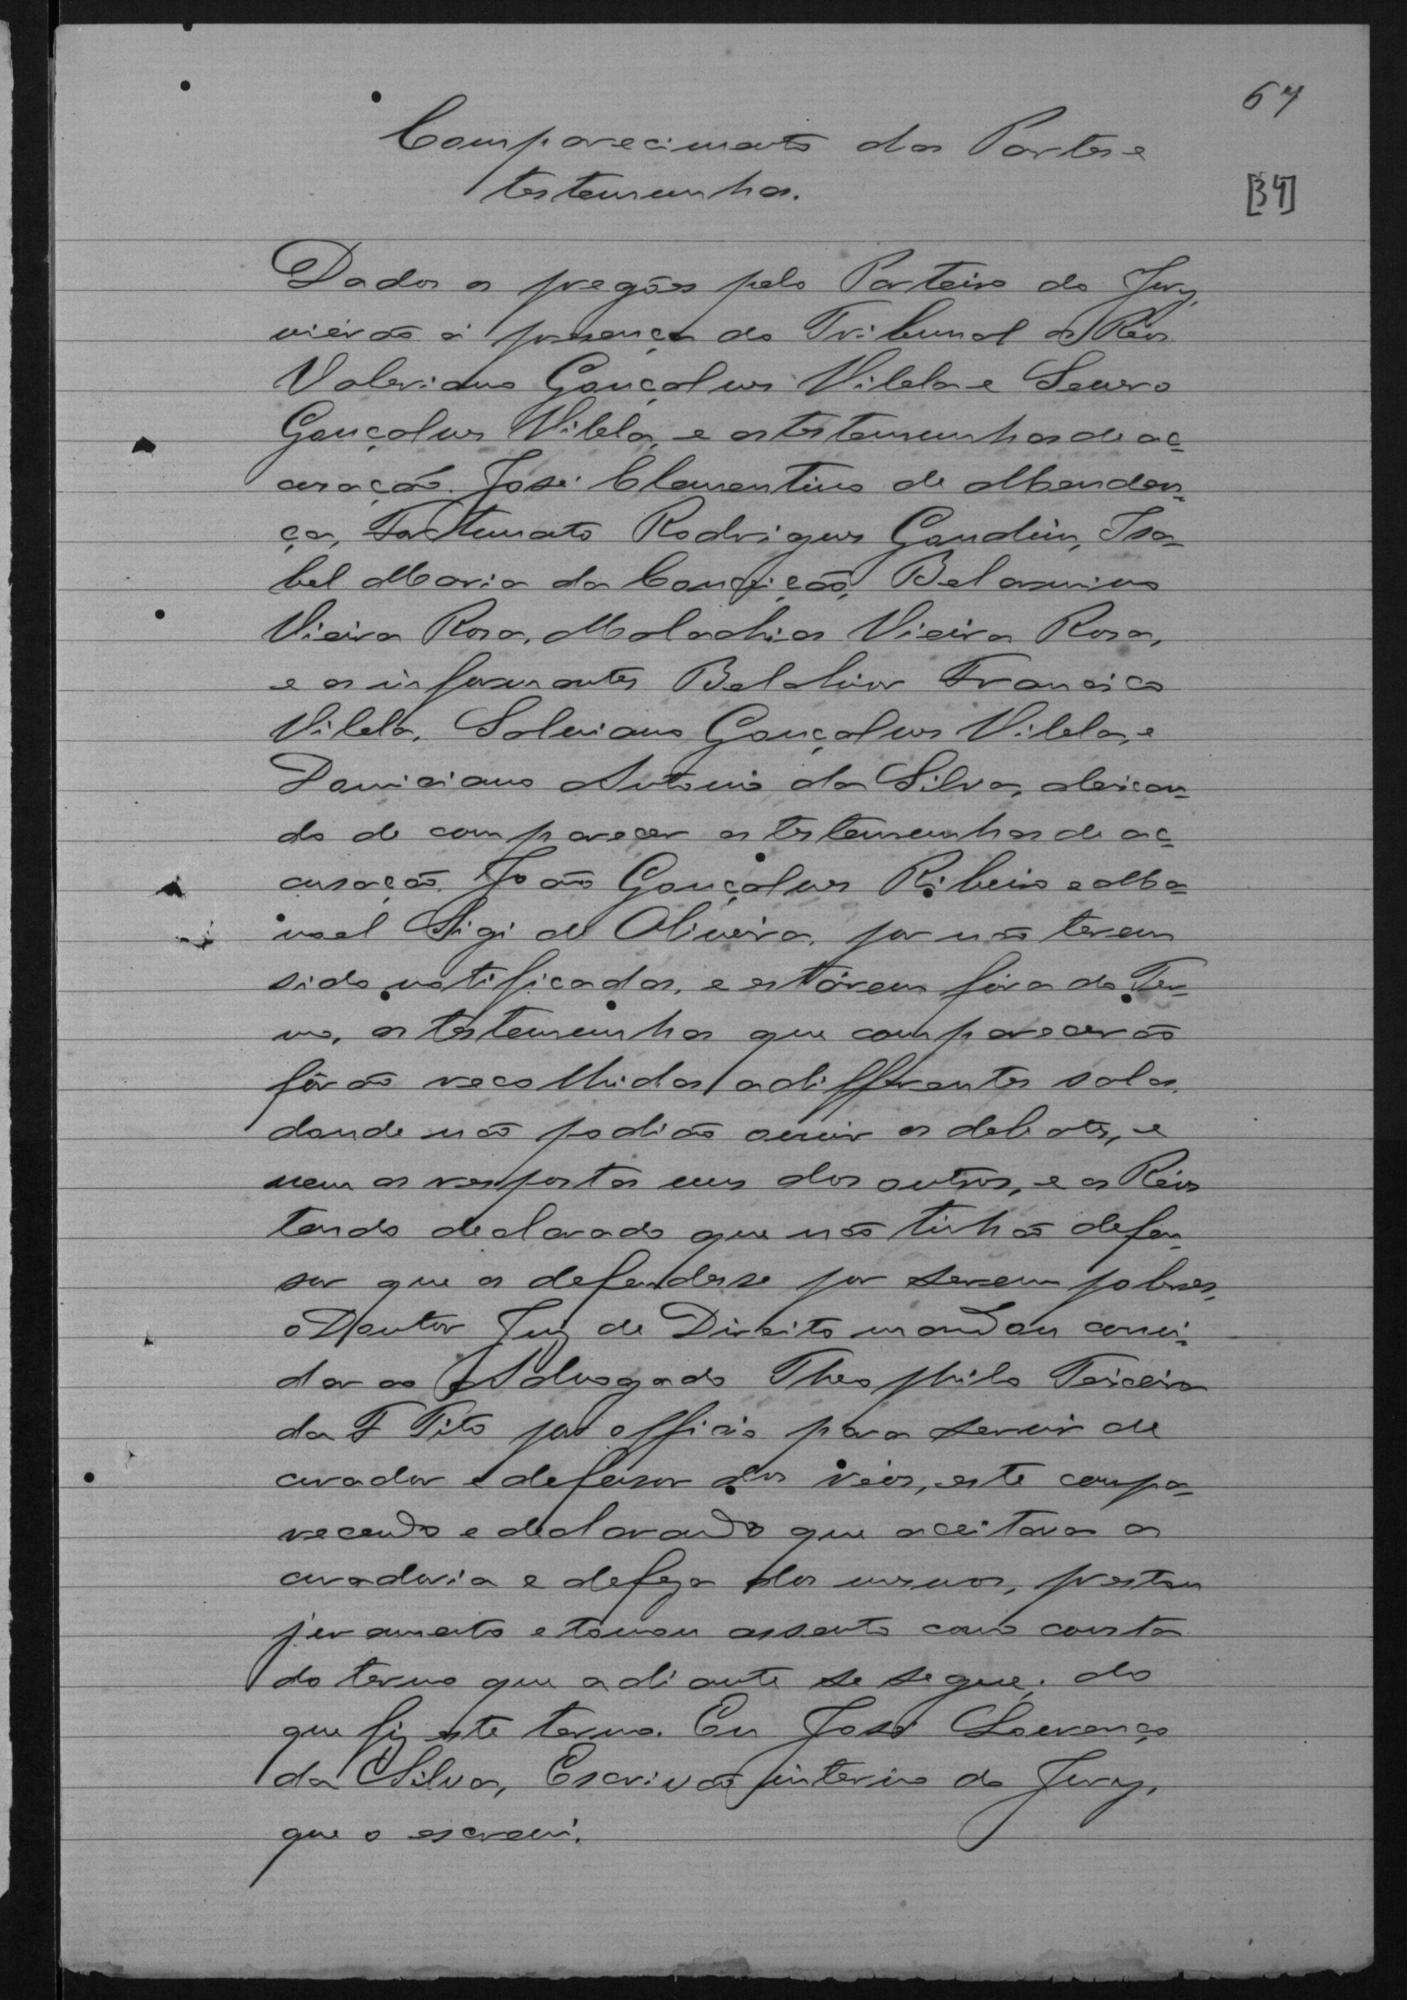 67
Comparecimento das Partes e
testemunhas.
[34]
Dados os pregões pelo Porteiro do Jury,
vierão á presença do Tribunal os Réos
Valeriano Gonçalves Vilela e Severo
Gonçalves Vilela, e as testemunhas de ac-
cusação. José Clementino de Mendon-
ça, Fortunato Rodrigues Gondim, Isa-
bel Maria da Conceição, Belarmino
Vieira Rosa, Malachias Vieira Rosa,
e os informantes Belchior Francisco
Vilela, Salviano Gonçalves Vilela, e
Domiciano Antonio da Silva, deixan-
do de comparecer as testemunhas de ac-
cusação. João Gonçalves Ribeiro e Ma-
noel de Oliveira, por não terem
sido notificados, e estárem fóra do Ter-
mo, as testemunhas que comparecerão
fôrão recolhidas a differentes salas,
donde não podião ouvir os debates, e
nem as respostas uns dos outros, e os Réos
tendo declarado que não tinhão defen-
sor que os defendesse por serem pobres,
o Doutor Juiz de Direito mandou convi-
dar ao Advogado Theophilo Teixeira
da F Tito por officio para servir de
curador e defensor dos réos, este compa-
recendo e declarando que aceitava a
curadoria e defeza dos mesmos, prestou
juramento e tomou assento como consta
do termo que adiante se segue; do
que fiz este termo. Eu José Lourenço
da Silva, Escrivão interino do Jury,
que o escrevi.